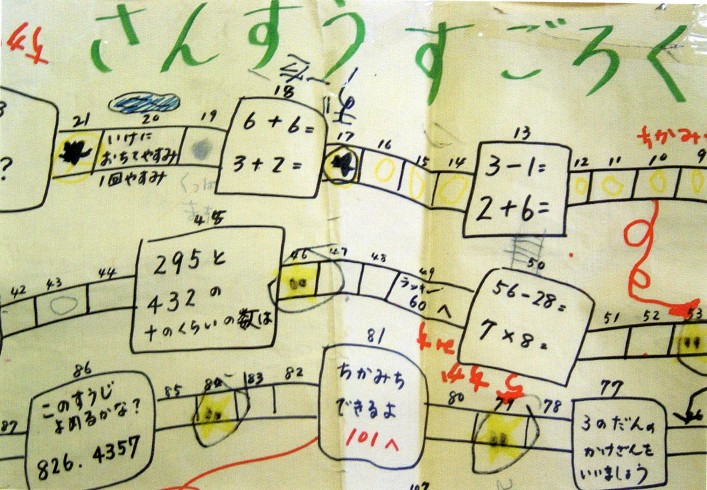 さんすう すごろく
21
20
19
18
17
16
15
14
13
12
11
10
9
いけに
おちてやすみ
1回やすみ
6+6=
3+2=
3-1=
2+6=
ちかみ
42
43
44
45
46
47
48
49
50
51
52
53
295と
432の
十のくらいの数は
ラッキー
60へ
56-28=
7×8=
87
86
85
84
83
82
81
80
79
78
77
このすうじ
よめるかな?
826.4357
ちかみち
できるよ
101へ
3のだんの
かけざんを
いいましょう